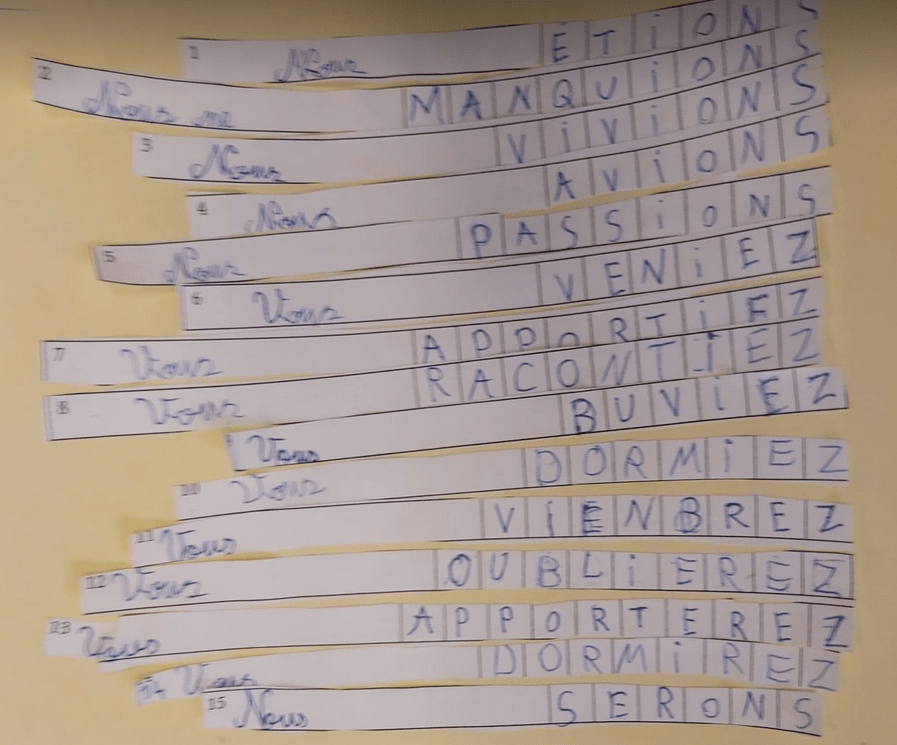 1 Nous ETIONS
2 Nous me MANQUIONS
3 Nous VIVIONS
4 Nous AVIONS
5 Nous PASSIONS
6 Vous VENIEZ
7 Vous APPORTIEZ
8 Vous RACONTIEZ
Vous BUVIEZ
10 Vous DORMIEZ
11 Vous VIENBREZ
12 Vous OUBLIEREZ
13 Vous APPORTEREZ
14 Vous DORMIREZ
15 Nous SERONS